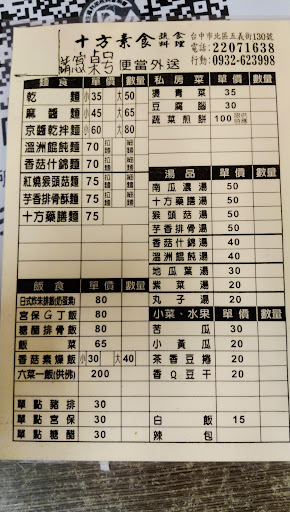 十方素食 蔬食料理 台中市北區五義街130號
電話:22071638
便當外送 行動:0932-623998
麵食 單價 數量
乾麵 小35 大50
麻醬麵 小45 大65
京醬乾拌麵 小60 大80
溫洲餛飩麵 70 拉麵 細麵
香菇什錦麵 70 拉麵 細麵
紅燒猴頭菇麵 75 拉麵 細麵
芋香排骨酥麵 75 拉麵 細麵
十方藥膳麵 75
飯食 單價 數量
日式炸朱排飯(奶蛋素) 80
宮保G丁飯 80
糖醋排骨飯 80
飯菜 65
香菇素燥飯 小30 大40
六菜一飯(供佛) 200
單點豬排 30
單點宮保 30
單點糖醋 30
私房菜 單價 數量
燙青菜 35
豆腐腦 30
蔬菜煎餅 100
湯品 單價 數量
南瓜濃湯 50
十方藥膳湯 50
猴頭菇湯 50
芋香排骨湯 50
香菇什錦湯 40
溫洲餛飩湯 40
地瓜葉湯 30
紫菜湯 30
丸子湯 20
小菜、水果 單價 數量
苦瓜 30
小黃瓜 30
茶香豆捲 20
香Q豆干 20
白飯 15
辣包